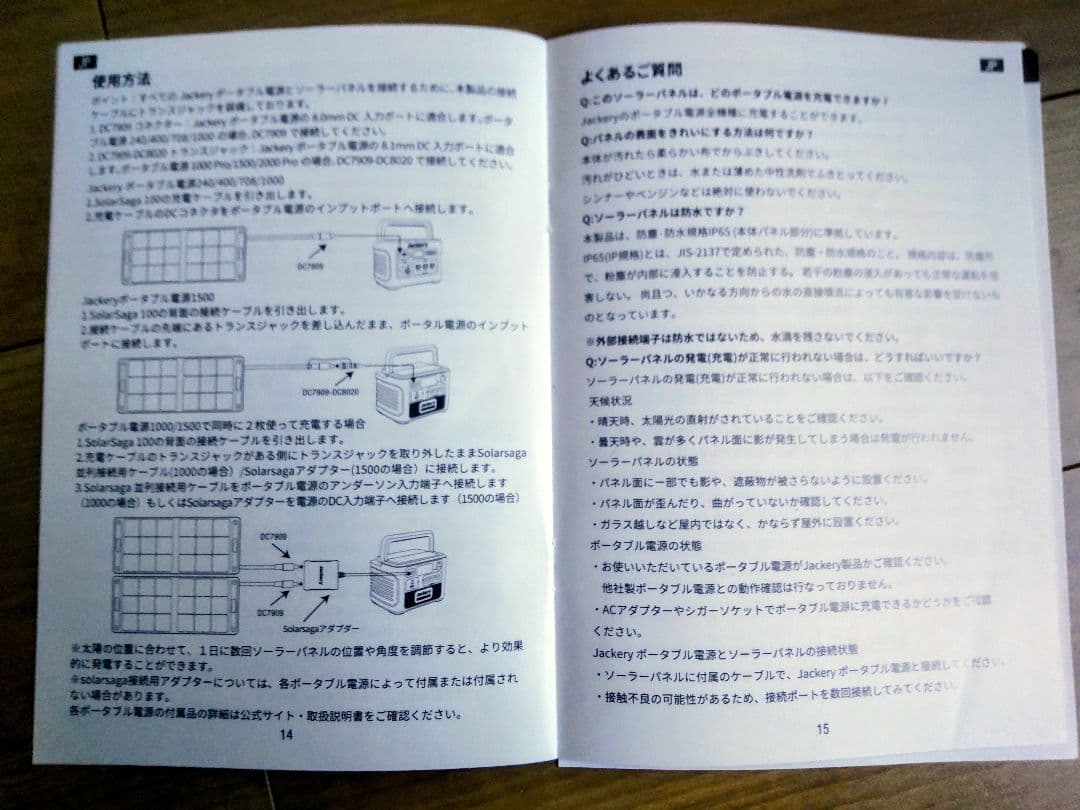 JP
使用方法
ポイント：すべての Jackery ポータブル電源とソーラーパネルを接続するために、本製品の接続
ケーブルにトランスジャックを装備しております。
1. DC7909 コネクター：Jackery ポータブル電源の 8.0mm DC 入力ポートに適合します。ポータ
ブル電源 240/400/708/1000 の場合、DC7909 で接続してください。
2. DC7909-DC8020 トランスジャック：Jackery ポータブル電源の 8.1mm DC 入力ポートに適合
します。ポータブル電源 1000 Pro/1500/2000 Pro の場合、DC7909-DC8020 で接続してください。
Jackery ポータブル電源240/400/708/1000
1.SolarSaga 100の充電ケーブルを引き出します。
2.充電ケーブルのDCコネクタをポータブル電源のインプットポートへ接続します。
Jackery
DC7909
Jackeryポータブル電源1500
1.SolarSaga 100の背面の接続ケーブルを引き出します。
2.接続ケーブルの先端にあるトランスジャックを差し込んだまま、ポータル電源のインプット
ポートに接続します。
DC7909-DC8020
ポータブル電源1000/1500で同時に２枚使って充電する場合
1.SolarSaga 100の背面の接続ケーブルを引き出します。
2.充電ケーブルのトランスジャックがある側にトランスジャックを取り外したままSolarsaga
並列接続用ケーブル(1000の場合）/Solarsagaアダプター(1500の場合）に接続します。
3.Solarsaga 並列接続用ケーブルをポータブル電源のアンダーソン入力端子へ接続します
(1000の場合）もしくはSolarsagaアダプターを電源のDC入力端子へ接続します（1500の場合）
DC7909
Jackery
DC7909
Solarsagaアダプター
※太陽の位置に合わせて、１日に数回ソーラーパネルの位置や角度を調節すると、より効果
的に発電することができます。
※solarsaga接続用アダプターについては、各ポータブル電源によって付属または付属され
ない場合があります。
各ポータブル電源の付属品の詳細は公式サイト・取扱説明書をご確認ください。
14
JP
よくあるご質問
Q:このソーラーパネルは、どのポータブル電源を充電できますか？
Jackeryのポータブル電源全機種に充電することができます。
Q:パネルの表面をきれいにする方法は何ですか？
本体が汚れたら柔らかい布でからぶきしてください。
汚れがひどいときは、水または薄めた中性洗剤でふきとってください。
シンナーやベンジンなどは絶対に使わないでください。
Q:ソーラーパネルは防水ですか？
本製品は、防塵·防水規格IP65 (本体パネル部分)に準拠しています。
IP65(IP規格)とは、JIS-2137で定められた、防塵・防水規格のこと。 規格内容は、防塵形
で、粉塵が内部に浸入することを防止する。 若干の粉塵の浸入があっても正常な運転を阻
害しない。 尚且つ、いかなる方向からの水の直接噴流によっても有害な影響を受けないも
のとなっています。
※外部接続端子は防水ではないため、水滴を残さないでください。
Q:ソーラーパネルの発電(充電)が正常に行われない場合は、どうすればいいですか？
ソーラーパネルの発電(充電)が正常に行われない場合は、以下をご確認ください。
天候状況
・晴天時、太陽光の直射がされていることをご確認ください。
・曇天時や、雲が多くパネル面に影が発生してしまう場合は発電が行われません。
ソーラーパネルの状態
・パネル面に一部でも影や、遮蔽物が被さらないように設置ください。
・パネル面が歪んだり、曲がっていないか確認してください。
・ガラス越しなど屋内ではなく、かならず屋外に設置ください。
ポータブル電源の状態
・お使いいただいているポータブル電源がJackery製品かご確認ください。
他社製ポータブル電源との動作確認は行なっておりません。
・ACアダプターやシガーソケットでポータブル電源に充電できるかどうかをご確認
ください。
Jackery ポータブル電源とソーラーパネルの接続状態
・ソーラーパネルに付属のケーブルで、Jackery ポータブル電源と接続してください。
・接触不良の可能性があるため、接続ポートを数回接続してみてください。
15